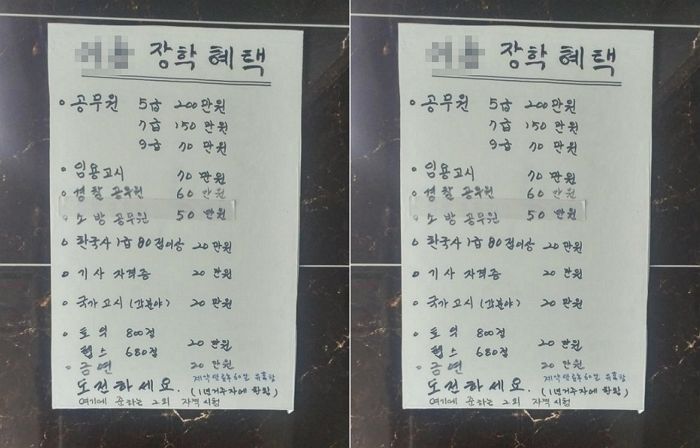 장학 혜택
공무원 5급 200만원
7급 150만원
9급 70만원
임용고시 70만원
경찰 공무원 60만원
소방 공무원 50만원
한국사 1급 80점이상 20만원
기사 자격증 20만원
국가고시 (각분야) 20만원
토익 800점
텝스 680점 20만원
금연 20만원
도전하세요. (1년거주자에 한함)
여기에 준하는 그외 자격시험
장학 혜택
공무원 5급 200만원
7급 150만원
9급 70만원
임용고시 70만원
경찰 공무원 60만원
소방 공무원 50만원
한국사 1급 80점이상 20만원
기사 자격증 20만원
국가고시 (각분야) 20만원
토익 800점
텝스 680점 20만원
금연 20만원
도전하세요. (1년거주자에 한함)
여기에 준하는 그외 자격시험